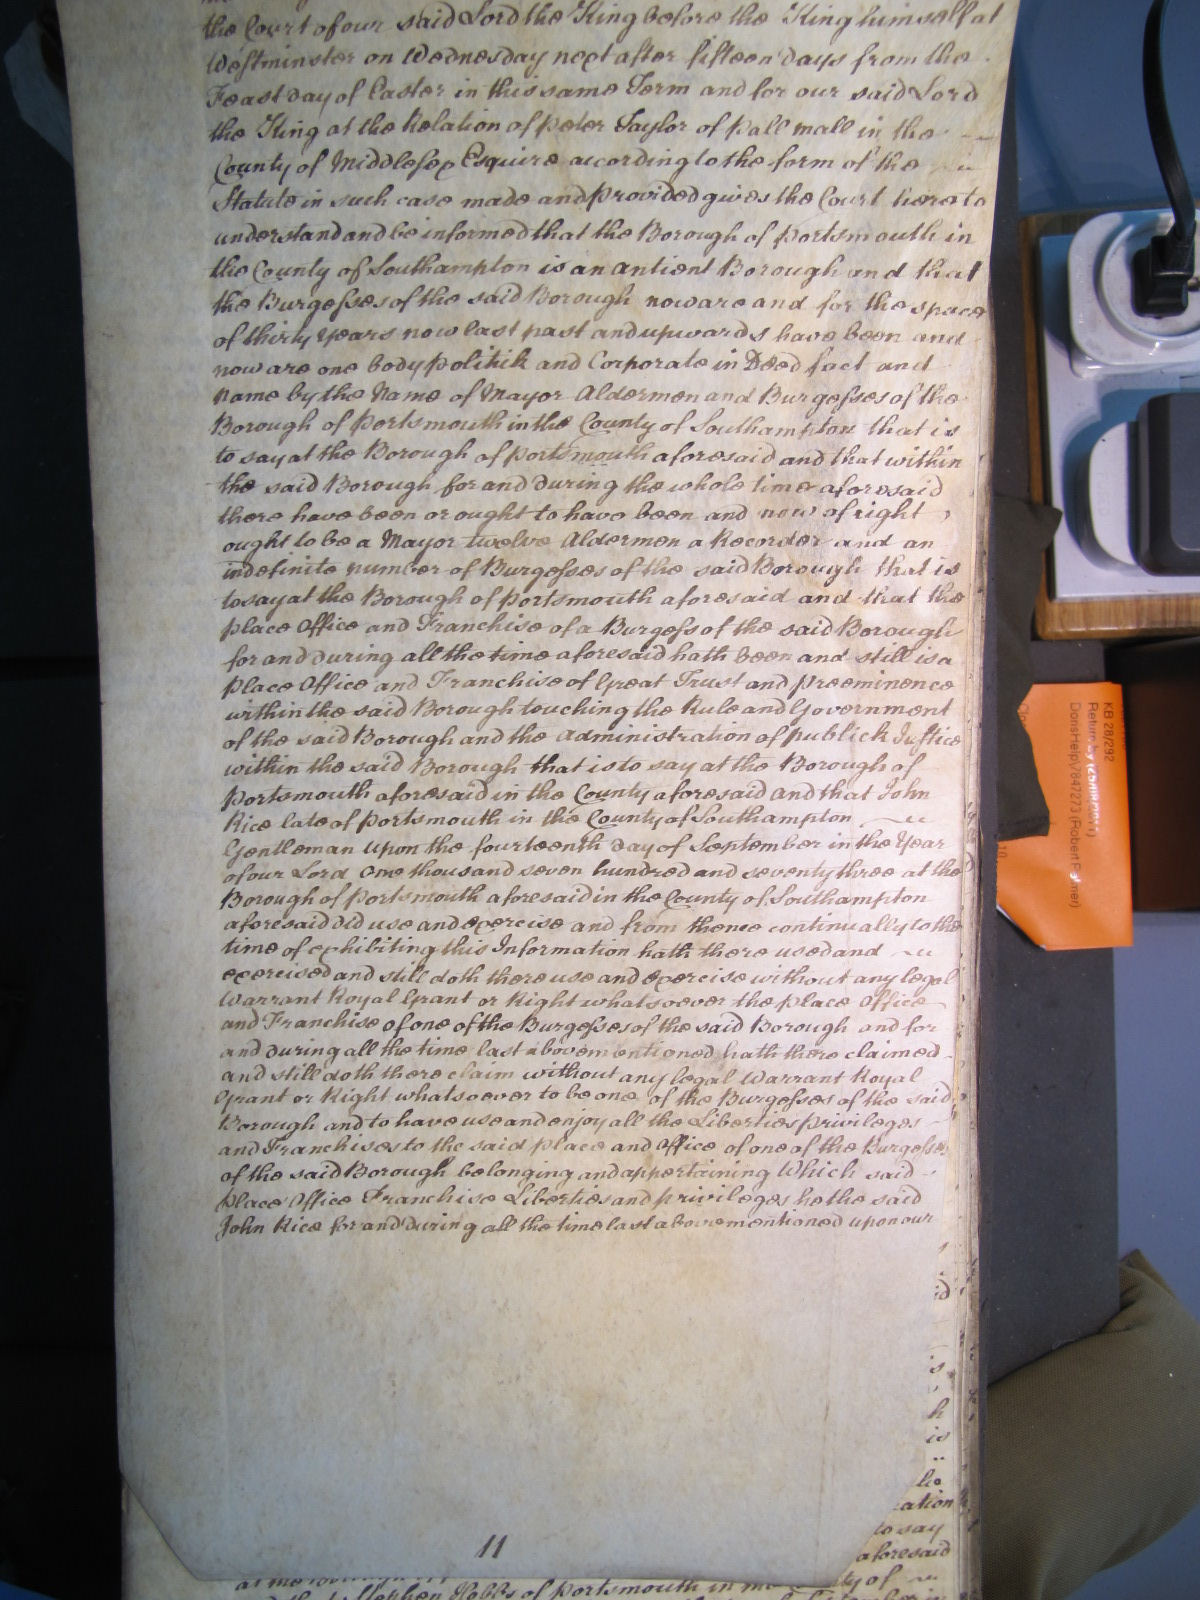 the Court of our said Lord the King before the King himself at
Westminster on Wednesday next after fifteen days from the
Feast day of Easter in this same Term and for our said Lord
the King at the Relation of Peter Taylor of Pall mall in the
County of Middlesex Esquire according to the form of the
Statute in such case made and provided gives the Court here to
understand and be informed that the Borough of Portsmouth in
the County of Southampton is an antient Borough and that
the Burgesses of the said Borough now are and for the space
of thirty Years now last past and upwards have been and
now are one body politik and Corporate in Deed fact and
Name by the Name of Mayor Aldermen and Burgesses of the
Borough of Portsmouth in the County of Southampton that is
to say at the Borough of Portsmouth aforesaid and that within
the said Borough for and during the whole time aforesaid
there have been or ought to have been and now of right
ought to be a Mayor twelve Aldermen a Recorder and an
indefinite number of Burgesses of the said Borough that is
to say at the Borough of Portsmouth aforesaid and that the
place Office and Franchise of a Burgess of the said Borough
for and during all the time aforesaid hath been and still is a
place Office and Franchise of Great Trust and preeminence
within the said Borough touching the Rule and Government
of the said Borough and the Administration of publick Justice
within the said Borough that is to say at the Borough of
Portsmouth aforesaid in the County aforesaid and that John
Rice late of Portsmouth in the County of Southampton
Gentleman upon the fourteenth day of September in the Year
of our Lord one thousand seven hundred and seventy three at the
Borough of Portsmouth aforesaid in the County of Southampton
aforesaid did use and exercise and from thence continually to the
time of exhibiting this Information hath there used and
exercised and still doth there use and exercise without any legal
Warrant Royal Grant or Right whatsoever the place Office
and Franchise of one of the Burgesses of the said Borough and for
and during all the time last abovementioned hath there claimed
and still doth there claim without any legal Warrant Royal
Grant or Right whatsoever to be one of the Burgesses of the said
Borough and to have use and enjoy all the Liberties privileges
and Franchises to the said place and Office of one of the Burgesses
of the said Borough belonging and appertaining Which said
Place Office Franchise Liberties and privileges he the said
John Rice for and during all the time last abovementioned upon our
is
h
is
ation
to say
aforesaid
11
Stephen Hobbs of Portsmouth in
KB 28/292
Return by
DorisHelpV847273 (Robert Palmer)